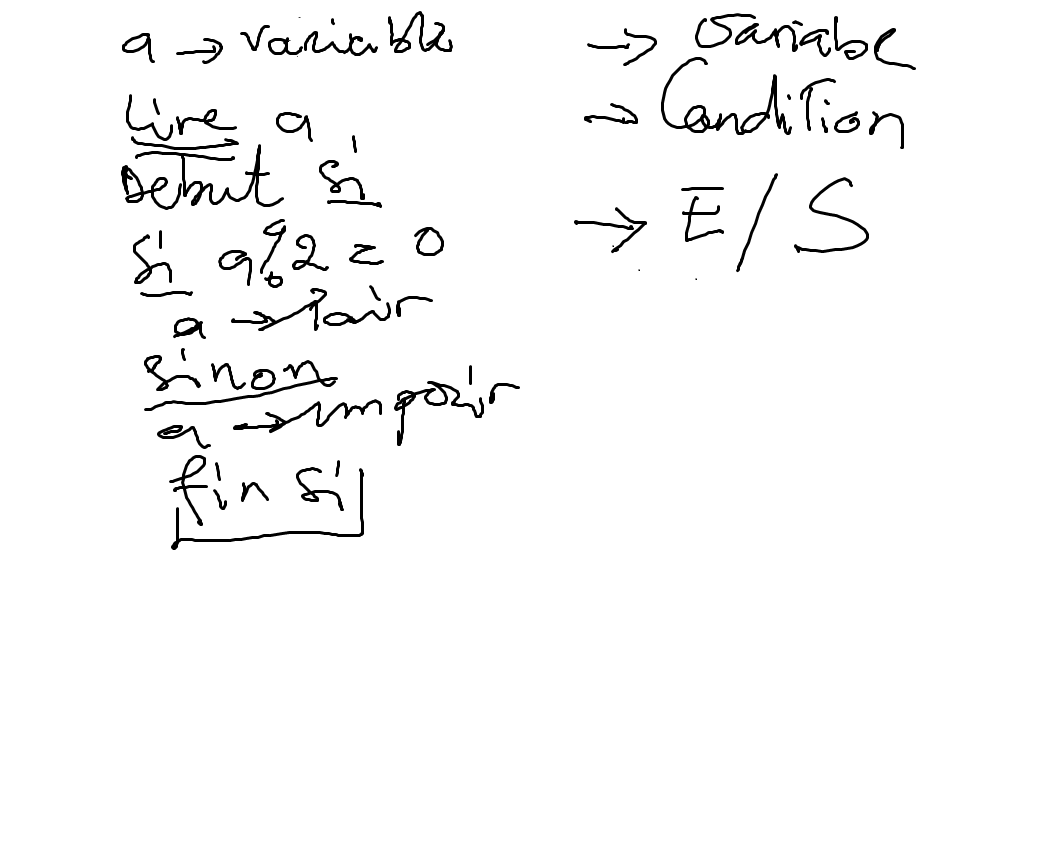 a → variable
Lire a
Debut si
si a % 2 = 0
a → Pair
sinon
a → impair
fin si
→ Variabe
→ Condition
→ E/S